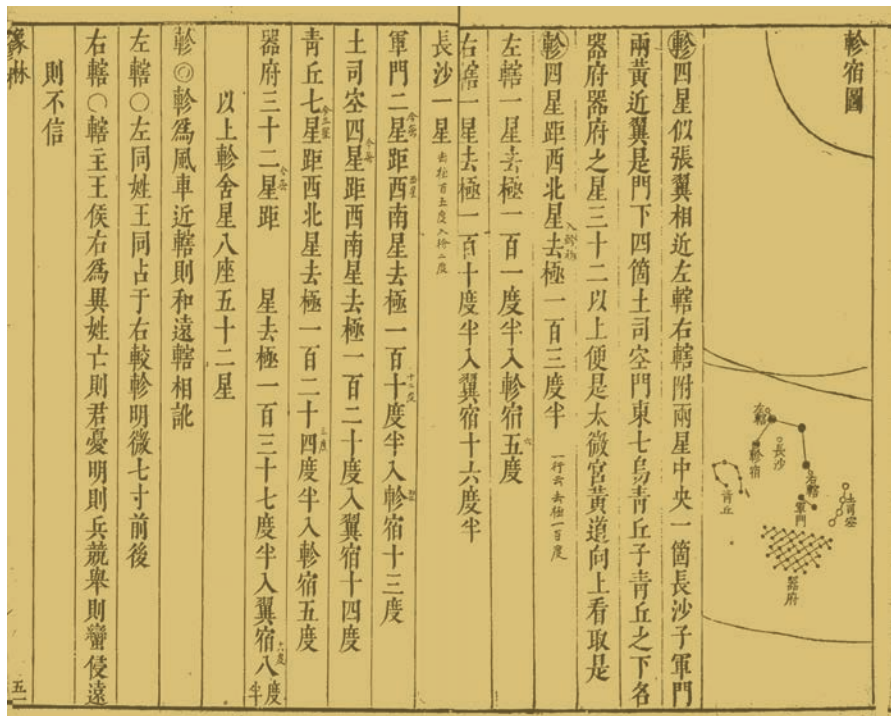 軫宿圖
左轄
長沙
軫宿
右轄
軍門
青丘
器府
軫四星似張翼相近左轄右轄附兩星中央一箇長沙子軍門
兩黃近翼是門下四箇土司空門東七烏青丘子青丘之下名
器府器府之星三十二以上便是太微宮黃道向上看取是
軫四星距西北星去極一百三度半 一行云去極一百度
左轄一星去極一百一度半入軫宿五度
右轄一星去極一百十度半入翼宿十六度半
長沙一星 去極百五度入軫二度
軍門二星距西南星去極一百十度半入軫宿十三度
土司空四星距西南星去極一百二十度入翼宿十四度
青丘七星距西北星去極一百二十四度半入軫宿五度
器府三十二星距 星去極一百三十七度半入翼宿八度半
以上軫舍星八座五十二星
軫◎軫為風車近轄則和遠轄相訛
左轄○左同姓王同占于右較軫明微七寸前後
右轄○轄主王侯右為異姓亡則君憂明則兵競舉則蠻侵遠
則不信
象林
五一